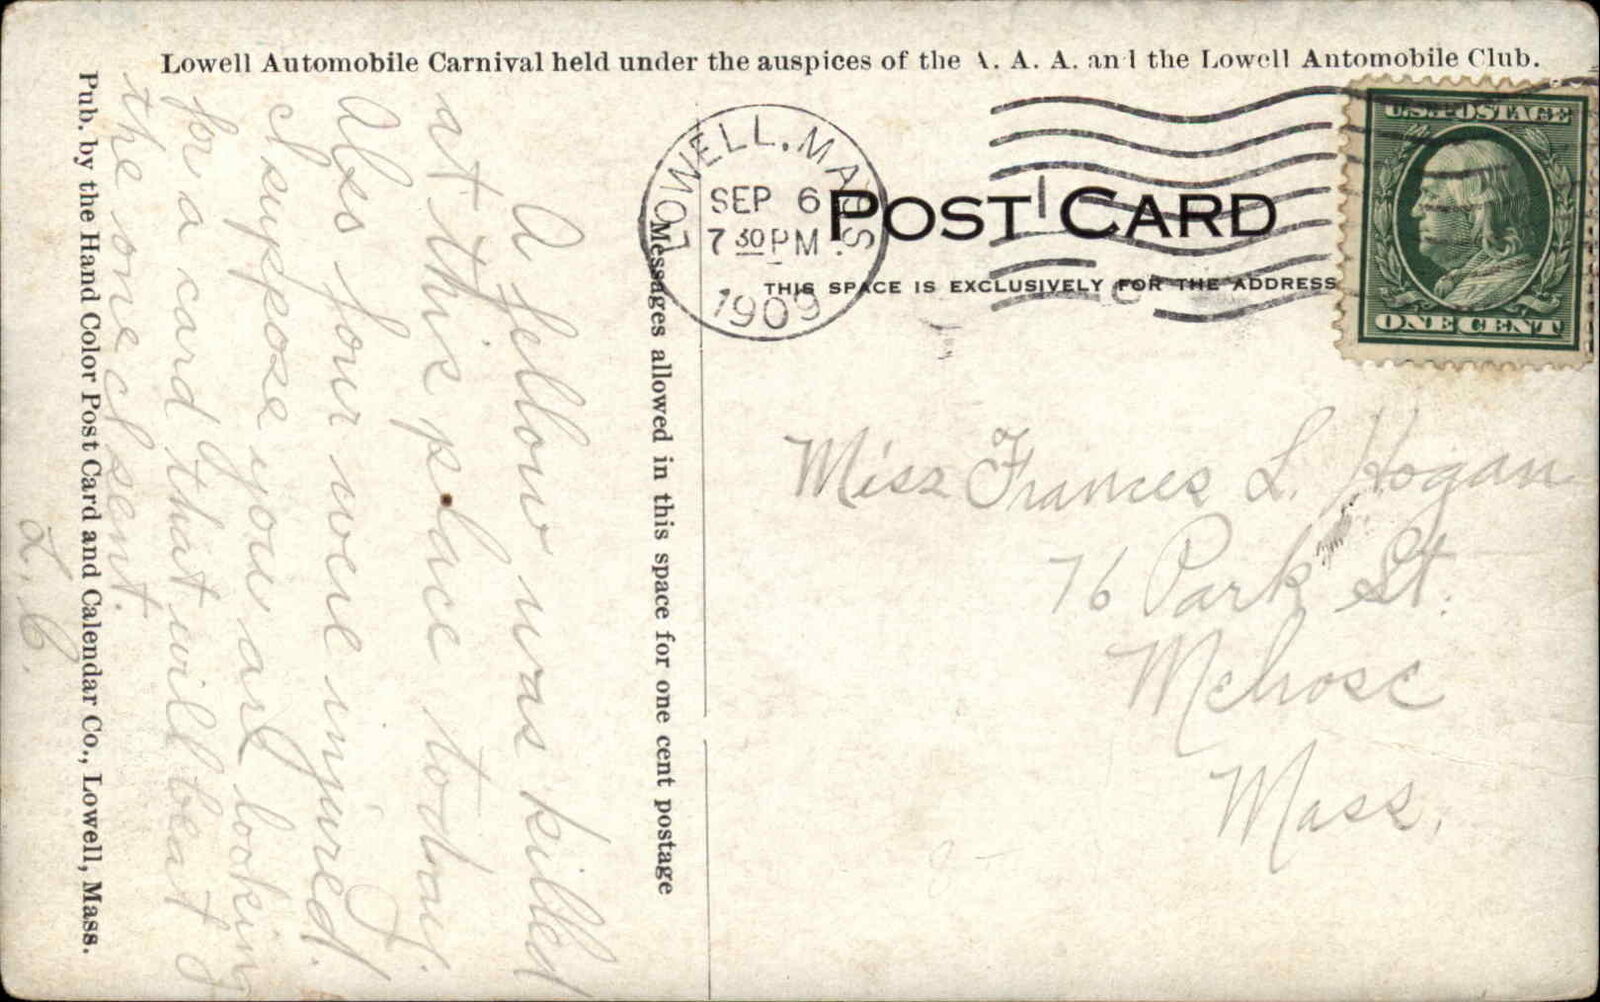 Lowell Automobile Carnival held under the auspices of the A. A. A. and the Lowell Automobile Club.
LOWELL, MASS.
SEP 6
7 30 PM
1909
POST CARD
THIS SPACE IS EXCLUSIVELY FOR THE ADDRESS
U.S. POSTAGE
ONE CENT
Miss Frances L. Hogan
76 Park St.
Melrose
Mass.
Messages allowed in this space for one cent postage
A fellow was killed
at this place today.
Also four were injured. I
suppose you are looking
for a card that will beat
the one I sent.
L. C.
Pub. by the Hand Color Post Card and Calendar Co., Lowell, Mass.